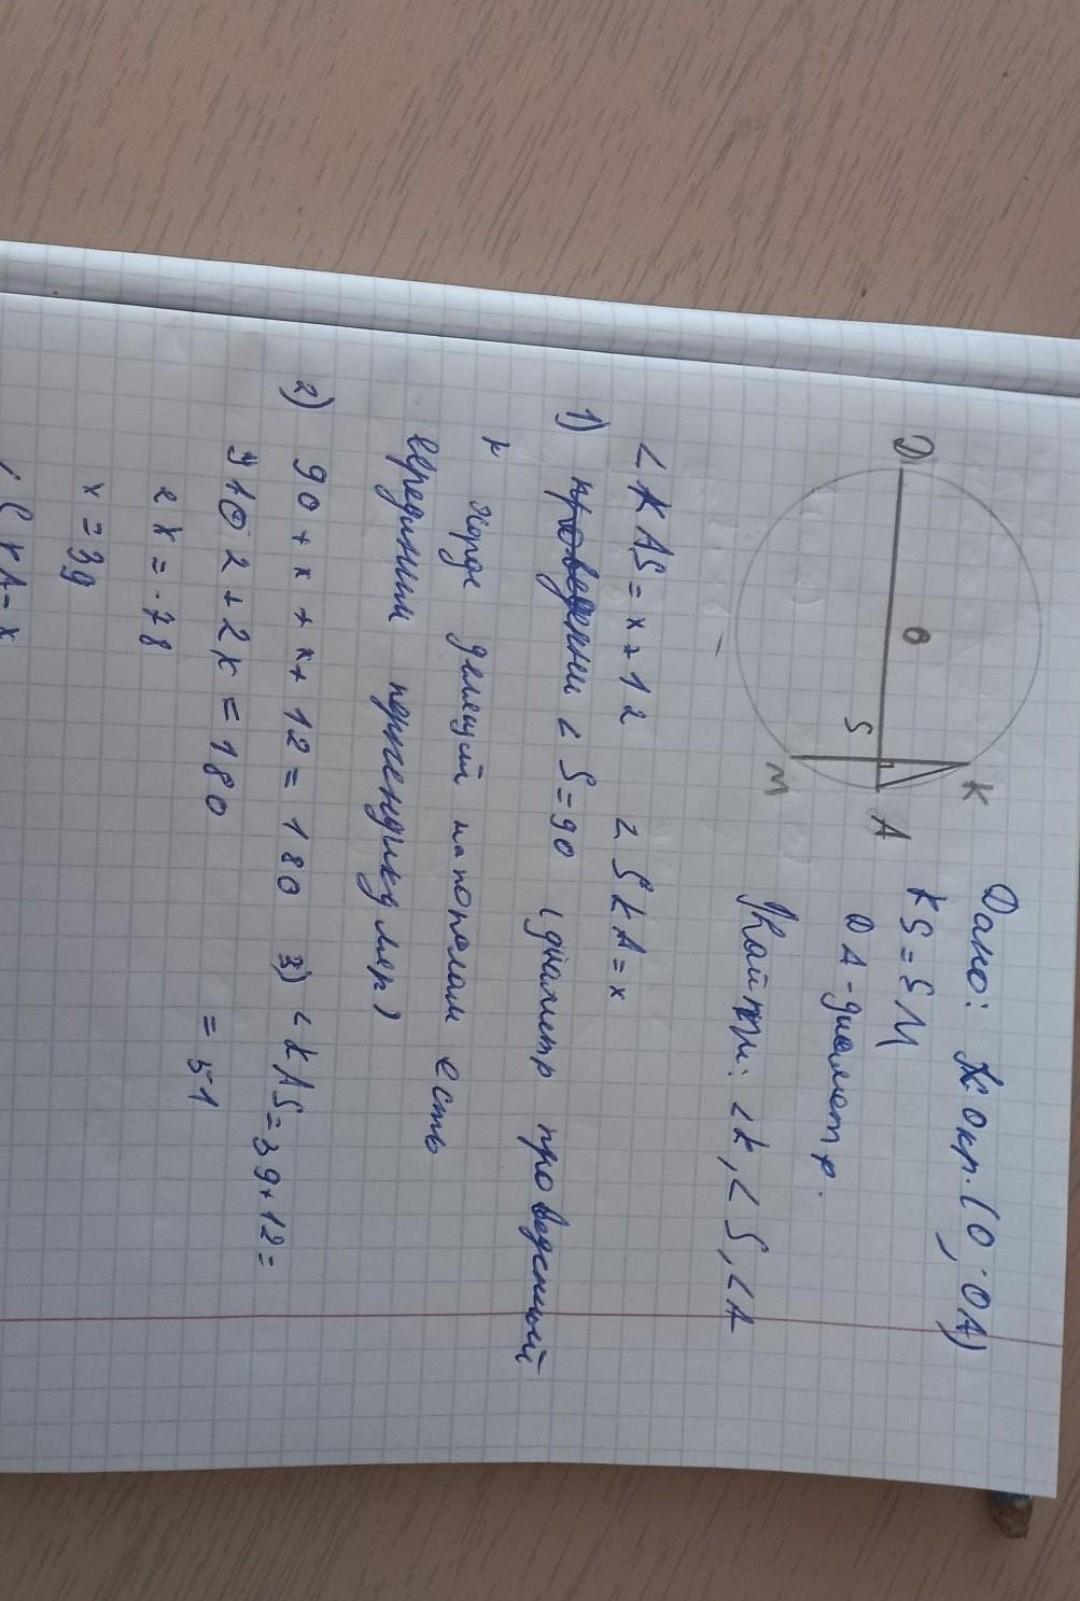 D
O
S
K
A
M
Дано: окр. (O; OA)
KS = SM
DA - диаметр.
Найти: <K, < S, < A
< KAS = x + 12 < SKA = x
1) проведенни < S = 90 (диаметр проведенный
к хорде делящий на пополам есть
серединный перпендикуляр)
2) 90 + x + x + 12 = 180 3) < KAS = 39 + 12 =
102 + 2x = 180 = 51
2x = 78
x = 39